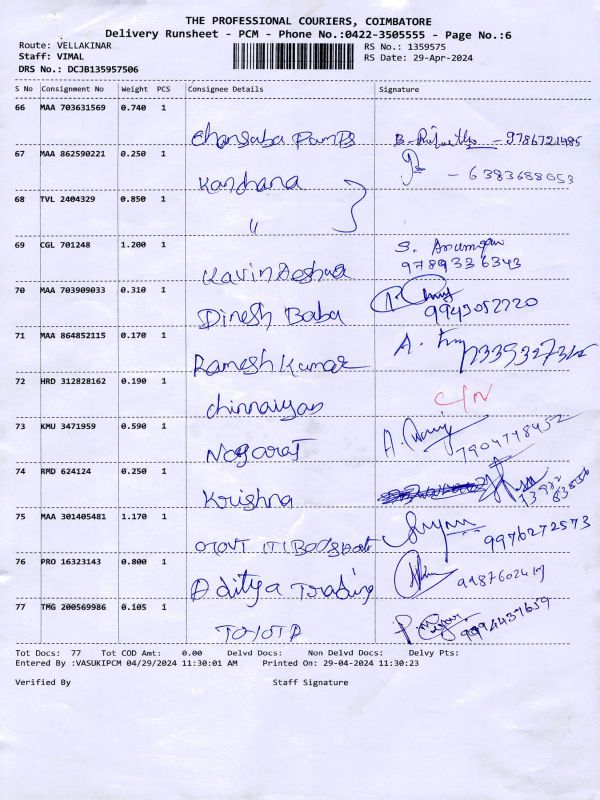 THE PROFESSIONAL COURIERS, COIMBATORE
Delivery Runsheet - PCM - Phone No.:0422-3505555 - Page No.:6
Route: VELLAKINAR
RS No.: 1359575
Staff: VIMAL
RS Date: 29-Apr-2024
DRS No.: DCJB135957506
S No Consignment No Weight PCS Consignee Details Signature
66 MAA 703631569 0.740 1
Pumps 9786721485
67 MAA 862590221 0.250 1
Kanchana - 6383688053
68 TVL 2404329 0.850 1
"
69 CGL 701248 1.200 1
S. Arumugam
9789336343
70 MAA 703909033 0.310 1
Dinesh Baba 9943052220
71 MAA 864852115 0.170 1
Ramesh Kumar A.
72 HRD 312828162 0.190 1
Chinnaiyan C/N
73 KMU 3471959 0.590 1
Nagaraj A. 7904748452
74 RMD 624124 0.250 1
Krishna
75 MAA 301405481 1.170 1
9976272573
76 PRO 16323143 0.800 1
Aditya Trading
77 TMG 200569986 0.105 1
TOYOTA 9994437659
Tot Docs: 77 Tot COD Amt: 0.00 Delvd Docs: Non Delvd Docs: Delvy Pts:
Entered By :VASUKIPCM 04/29/2024 11:30:01 AM Printed On: 29-04-2024 11:30:23
Verified By Staff Signature